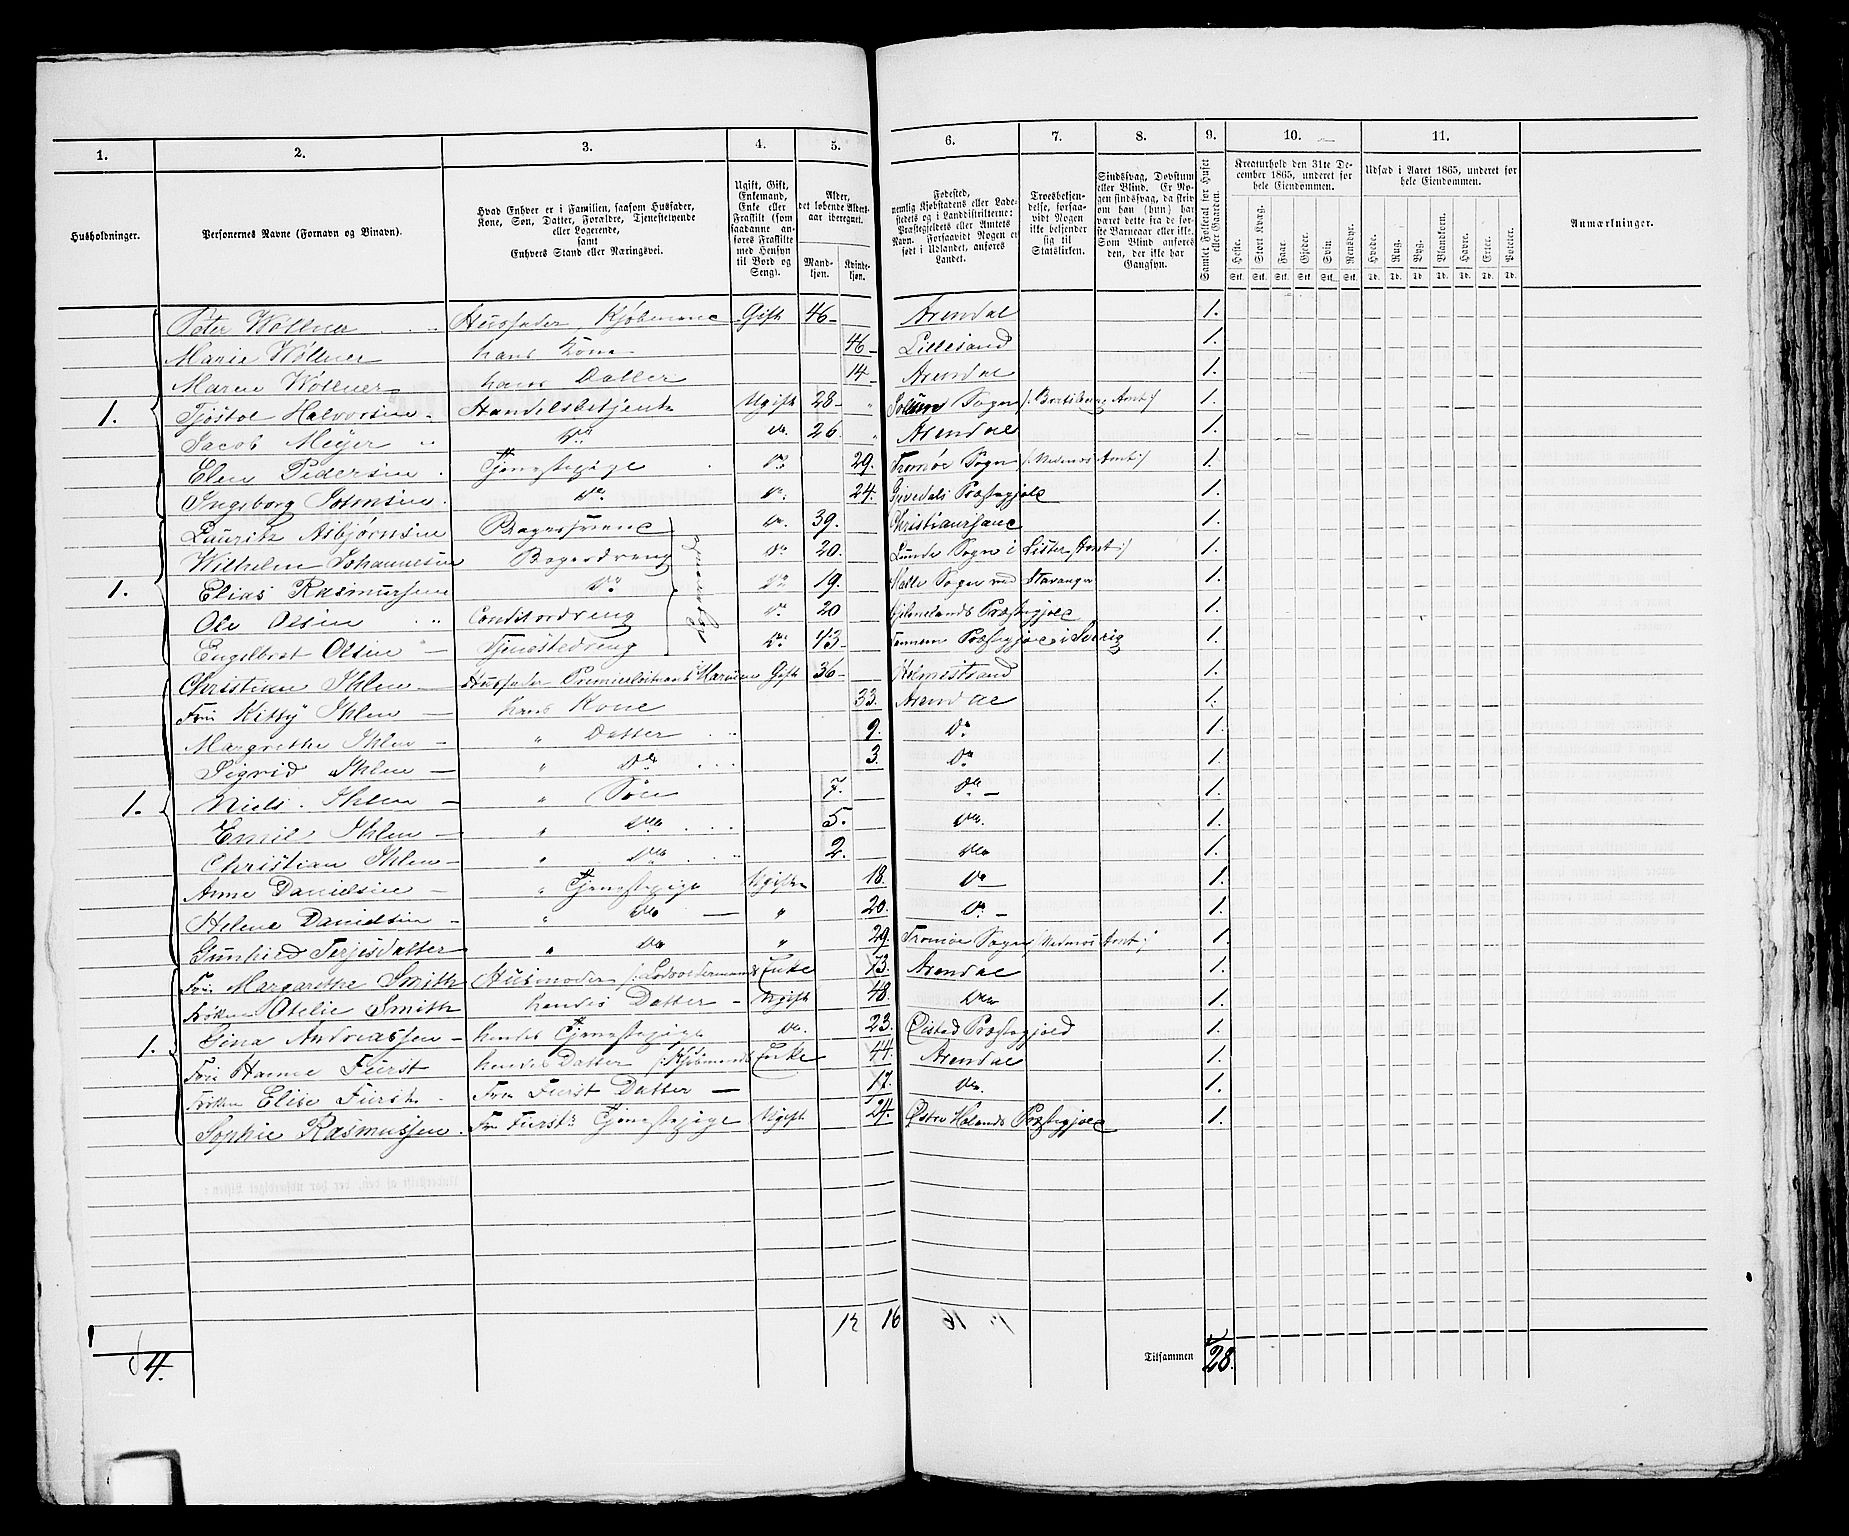 1. 2. 3. 4. 5. 6. 7. 8. 9. 10. 11.
Husholdninger.
Personernes Navne (Fornavn og Binavn).
Hvad Enhver er i Familien, saasom Husfader, Kone, Søn, Datter, Forældre, Tjenestetyende eller Logerende, samt Enhvers Stand eller Næringsvei.
Ugift, Gift, Enkemand, Enke eller Fraskilt (som saadanne anføres Fraskilte med Hensyn til Bord og Seng).
Alder, det løbende Aldersaar iberegnet.
Mandkjøn. Kvindekjøn.
Fødested, nemlig Kjøbstadens eller Ladestedets og i Landdistrikterne: Præstegjeldets eller Amtets Navn. Forsaavidt Nogen er født i Udlandet, anføres Landet.
Troesbekjendelse, forsaavidt Nogen ikke bekjender sig til Statskirken.
Sindssvag, Døvstum eller Blind. Er Nogen sindssvag, da skrives om han (hun) har været dette fra de første Barneaar eller ikke. Som Blind anføres den, der ikke har Gangsyn.
Samlet Folketal for Huset eller Gaarden.
Kreaturhold den 31te December 1865, underet for hele Eiendommen.
Heste. Stort Kvæg. Faar. Gjeder. Svin. Rensdyr.
Stk. Stk. Stk. Stk. Stk. Stk.
Udsæd i Aaret 1865, underet for hele Eiendommen.
Hvede. Rug. Byg. Blandkorn. Havre. Erter. Poteter.
Td. Td. Td. Td. Td. Td. Td.
Anmærkninger.
Peter Wollner Husfader, Kjøbmand Gift 46 Arendal 1.
Marie Wøllner hans Kone 46 Lillesand 1.
Maren Wøllner hans Datter 14 Arendal 1.
1. Tjøstol Halvorsen Handelsbetjent Ugift 28 Sogn /:Bratsberg Amt:/ 1.
Jacob Meyer Do Do 26 Arendal 1.
Elen Pedersen Tjenestepige Do 29. Tromøe Sogn /:Nedenæs Amt:/ 1.
Ingeborg Do Do 24. Præstegjeld 1.
Lauritz Asbjørnsen Bagersvend Do 39. Christianssand 1.
Wilhelm Johannesen Bagerdreng Do 20. Lunde Sogn i Lister Amt:/ 1.
1. Elias Rasmussen Do Do 19. Sogn ved Stavanger 1.
Ole Olsen Conditordreng Do 20 Præstegjeld 1.
Engelbret Olsen Tjenestedreng Do 13 Præstegjeld i Sverig 1.
Logerende
Christian Ihlen Husfader Premierleitnant i Marinen Gift 36 Holmestrand 1.
Fru Kitty Ihlen hans Kone 33. Arendal 1.
Margrethe Ihlen " Datter 9. Do 1.
Sigrid Ihlen " Do 3. Do 1.
1. Niels Ihlen " Søn 7. Do 1.
Emil Ihlen " Do 5. Do 1.
Christian Ihlen " Do 2. Do 1.
Anne Danielsen " Tjenestepige Ugift 18. Do 1.
Helene Danielsen " Do " 20. Do 1.
Gunhild Terjesdatter " Do " 29. Tromøe Sogn /:Nedenæs Amt:/ 1.
Fru Margarethe Smith Husmoder Enke 73. Arendal 1.
Frøken Otelie Smith hendes Datter Ugift 48. Do 1.
1. Sina Andreassen hendes Tjenestepige Do 23. Øiestad Præstegjeld 1.
Fru Hanne Fürst hendes Datter /:Kjøbmands Enke 44. Arendal 1.
Frøken Elise Fürst Fru Fürst Datter 17. Do 1.
Sophie Rasmussen Fru Fürsts Tjenestepige Ugift 24. Østre Molands Præstegjeld 1.
4. 12 16 Tilsammen 28.